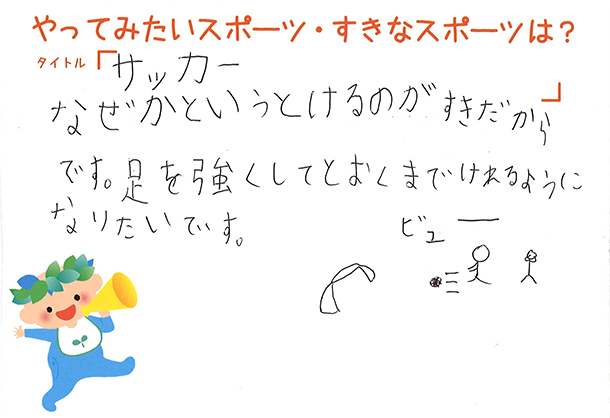 やってみたいスポーツ・すきなスポーツは?
タイトル「サッカー
なぜかというとけるのがすきだから」
です。足を強くしてとおくまでけれるように
なりたいです。
ビュー